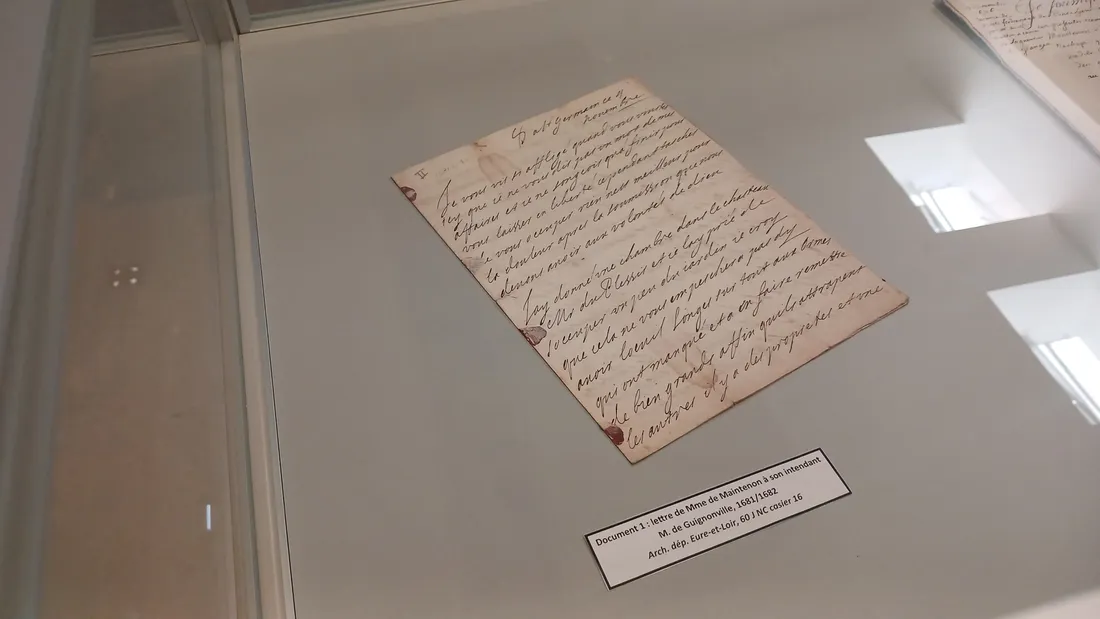 II
a st Germain ce 9
novembre
Je vous vis si affligé quand vous vintes
icy que ie ne vous dis pas un mot de mes
affaires et ie ne songeois qua finir pour
vous laisser en liberté cependant taschez
de vous occuper rien nest meilleur pour
la douleur apres la soumission que nous
devons avoir aux volontés de dieu
Jay donné une chambre dans le chasteau
a Mr du Plessis et ie lay prié de
soccuper un peu du iardin ie croy
que cela ne vous empeschera pas dy
avoir loeuil songez sur tout aux
qui ont manqué et a en faire remettre
de bien grands affin quils attrapent
les autres il y a des propretes et une
Document 1 : lettre de Mme de Maintenon à son intendant
M. de Guignonville, 1681/1682
Arch. dép. Eure-et-Loir, 60 J NC casier 16